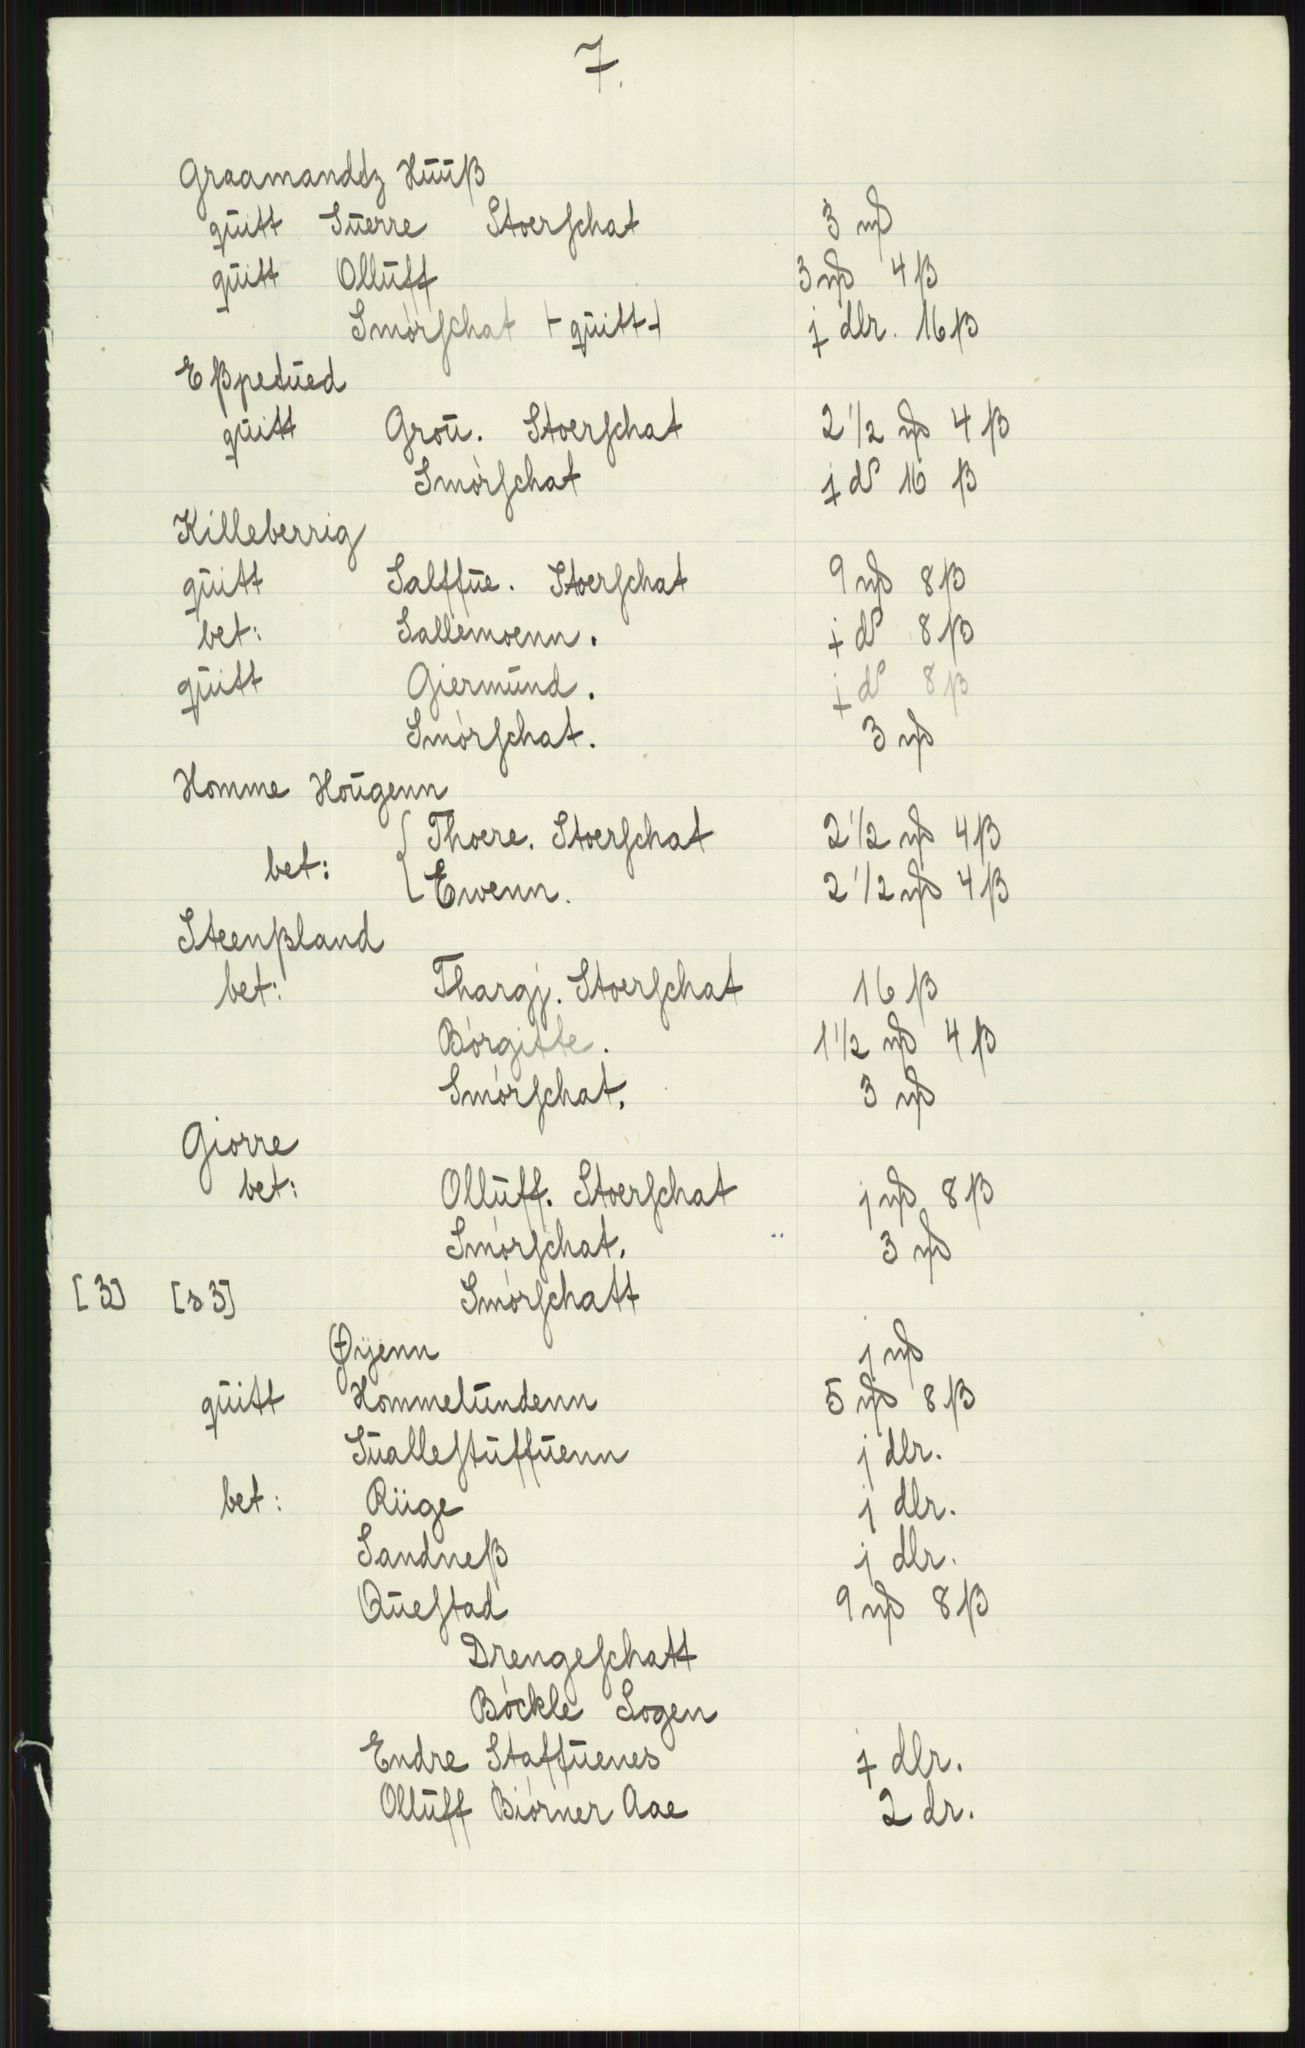 7.
Graamandtz Hŭŭß
qŭitt Sŭerre Stoerschat 3 mȸ
qŭitt Ollŭff 3 mȸ 4 ß
Smórschat ⊢ qŭitt ⊣ j dlr. 16 ß
Eßpetŭed
qŭitt Groŭ. Stoerschat 2 1/2 mȸ 4 ß
Smórschat j d 16 ß
Killeberrig
qŭitt Salffŭe. Stoerschat 9 mȸ 8 ß
bet: Sallemoenn. j d 8 ß
qŭitt Giermŭnd. j d 8 ß
Smórschat. 3 mȸ
Homme Hoŭgenn
bet: { Thoere. Stoerschat 2 1/2 mȸ 4 ß
Ewenn. 2 1/2 mȸ 4 ß
Steenßland
bet: Thargj. Stoerschat 16 ß
Bórgitte. 1 1/2 mȸ 4 ß
Smórschat. 3 mȸ
Giorre
bet: Ollŭff. Stoerschat j mȸ 8 ß
Smórschat. 3 mȸ
[3] [s 3] Smórschatt
Øÿenn j mȸ
qŭitt Hommelŭndenn 5 mȸ 8 ß
Sŭallestŭffŭenn j dlr.
bet: Rüge j dlr.
Sandneß j dlr.
Qŭestad 9 mȸ 8 ß
Drengeschatt
Bóckle Sogen
Endre Staffŭenes j dlr.
Ollŭff Biórner Aae 2 dr.